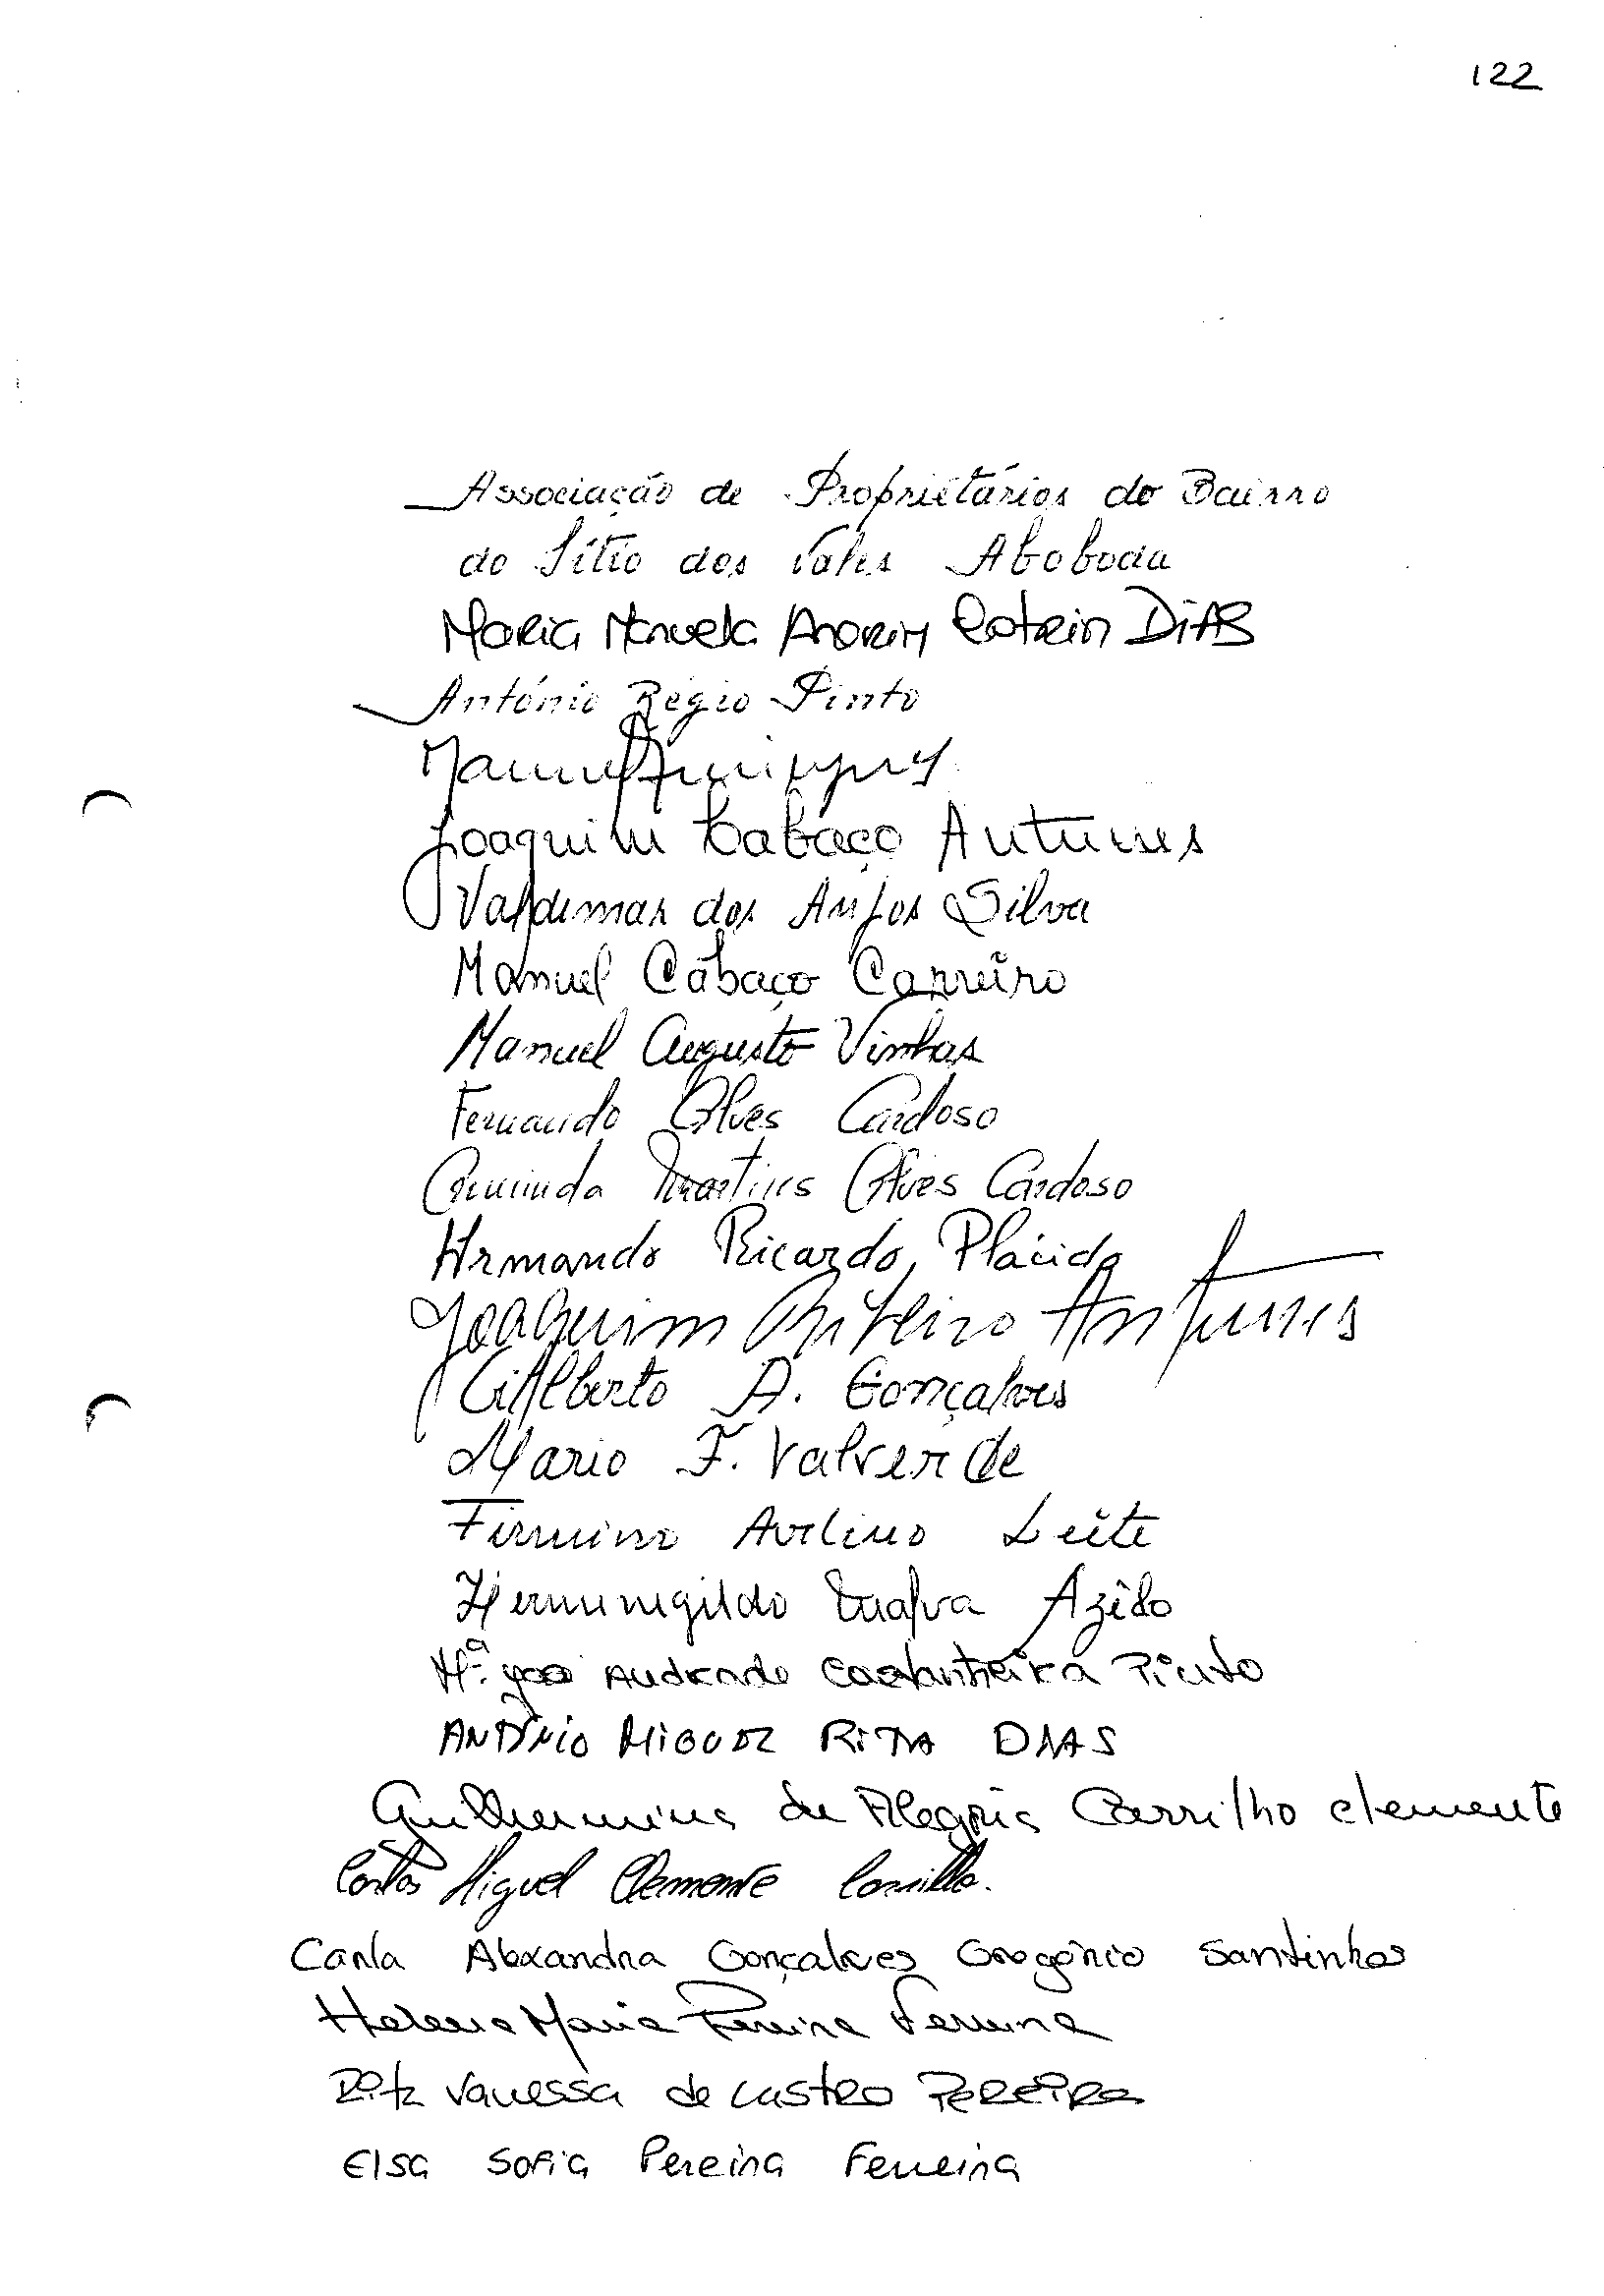 122
Associação de Proprietários do Bairro
do Sítio dos Vales Aboboda
Maria Manuela Amorim Rotrin DiAS
António Régio Pinto
Joaquim Cabaço Antunes
Valdemar dos Anjos Silva
Manuel Cabaço Carreiro
Manuel Augusto Vinhas
Fernando Alves Cardoso
Martins Alves Cardoso
Armando Ricardo Plácido
Joaquim Ribeiro Antunes
Gilberto A. Gonçalves
Mario F. Valverde
Firmino Avelino Leite
Hermenegildo Malva Azêdo
Mª. João Andrade Castanheira Pinto
ANTÓNIO MIGUEL RITA DIAS
Guilhermina da Alegria Carrilho clemente
Carlos Miguel Clemente Carrilho.
Carla Alexandra Gonçalves Gregório Santinhos
Helena Maria Pereira Ferreira
Rita Vanessa de Castro Pereira
Elsa Sofia Pereira Ferreira